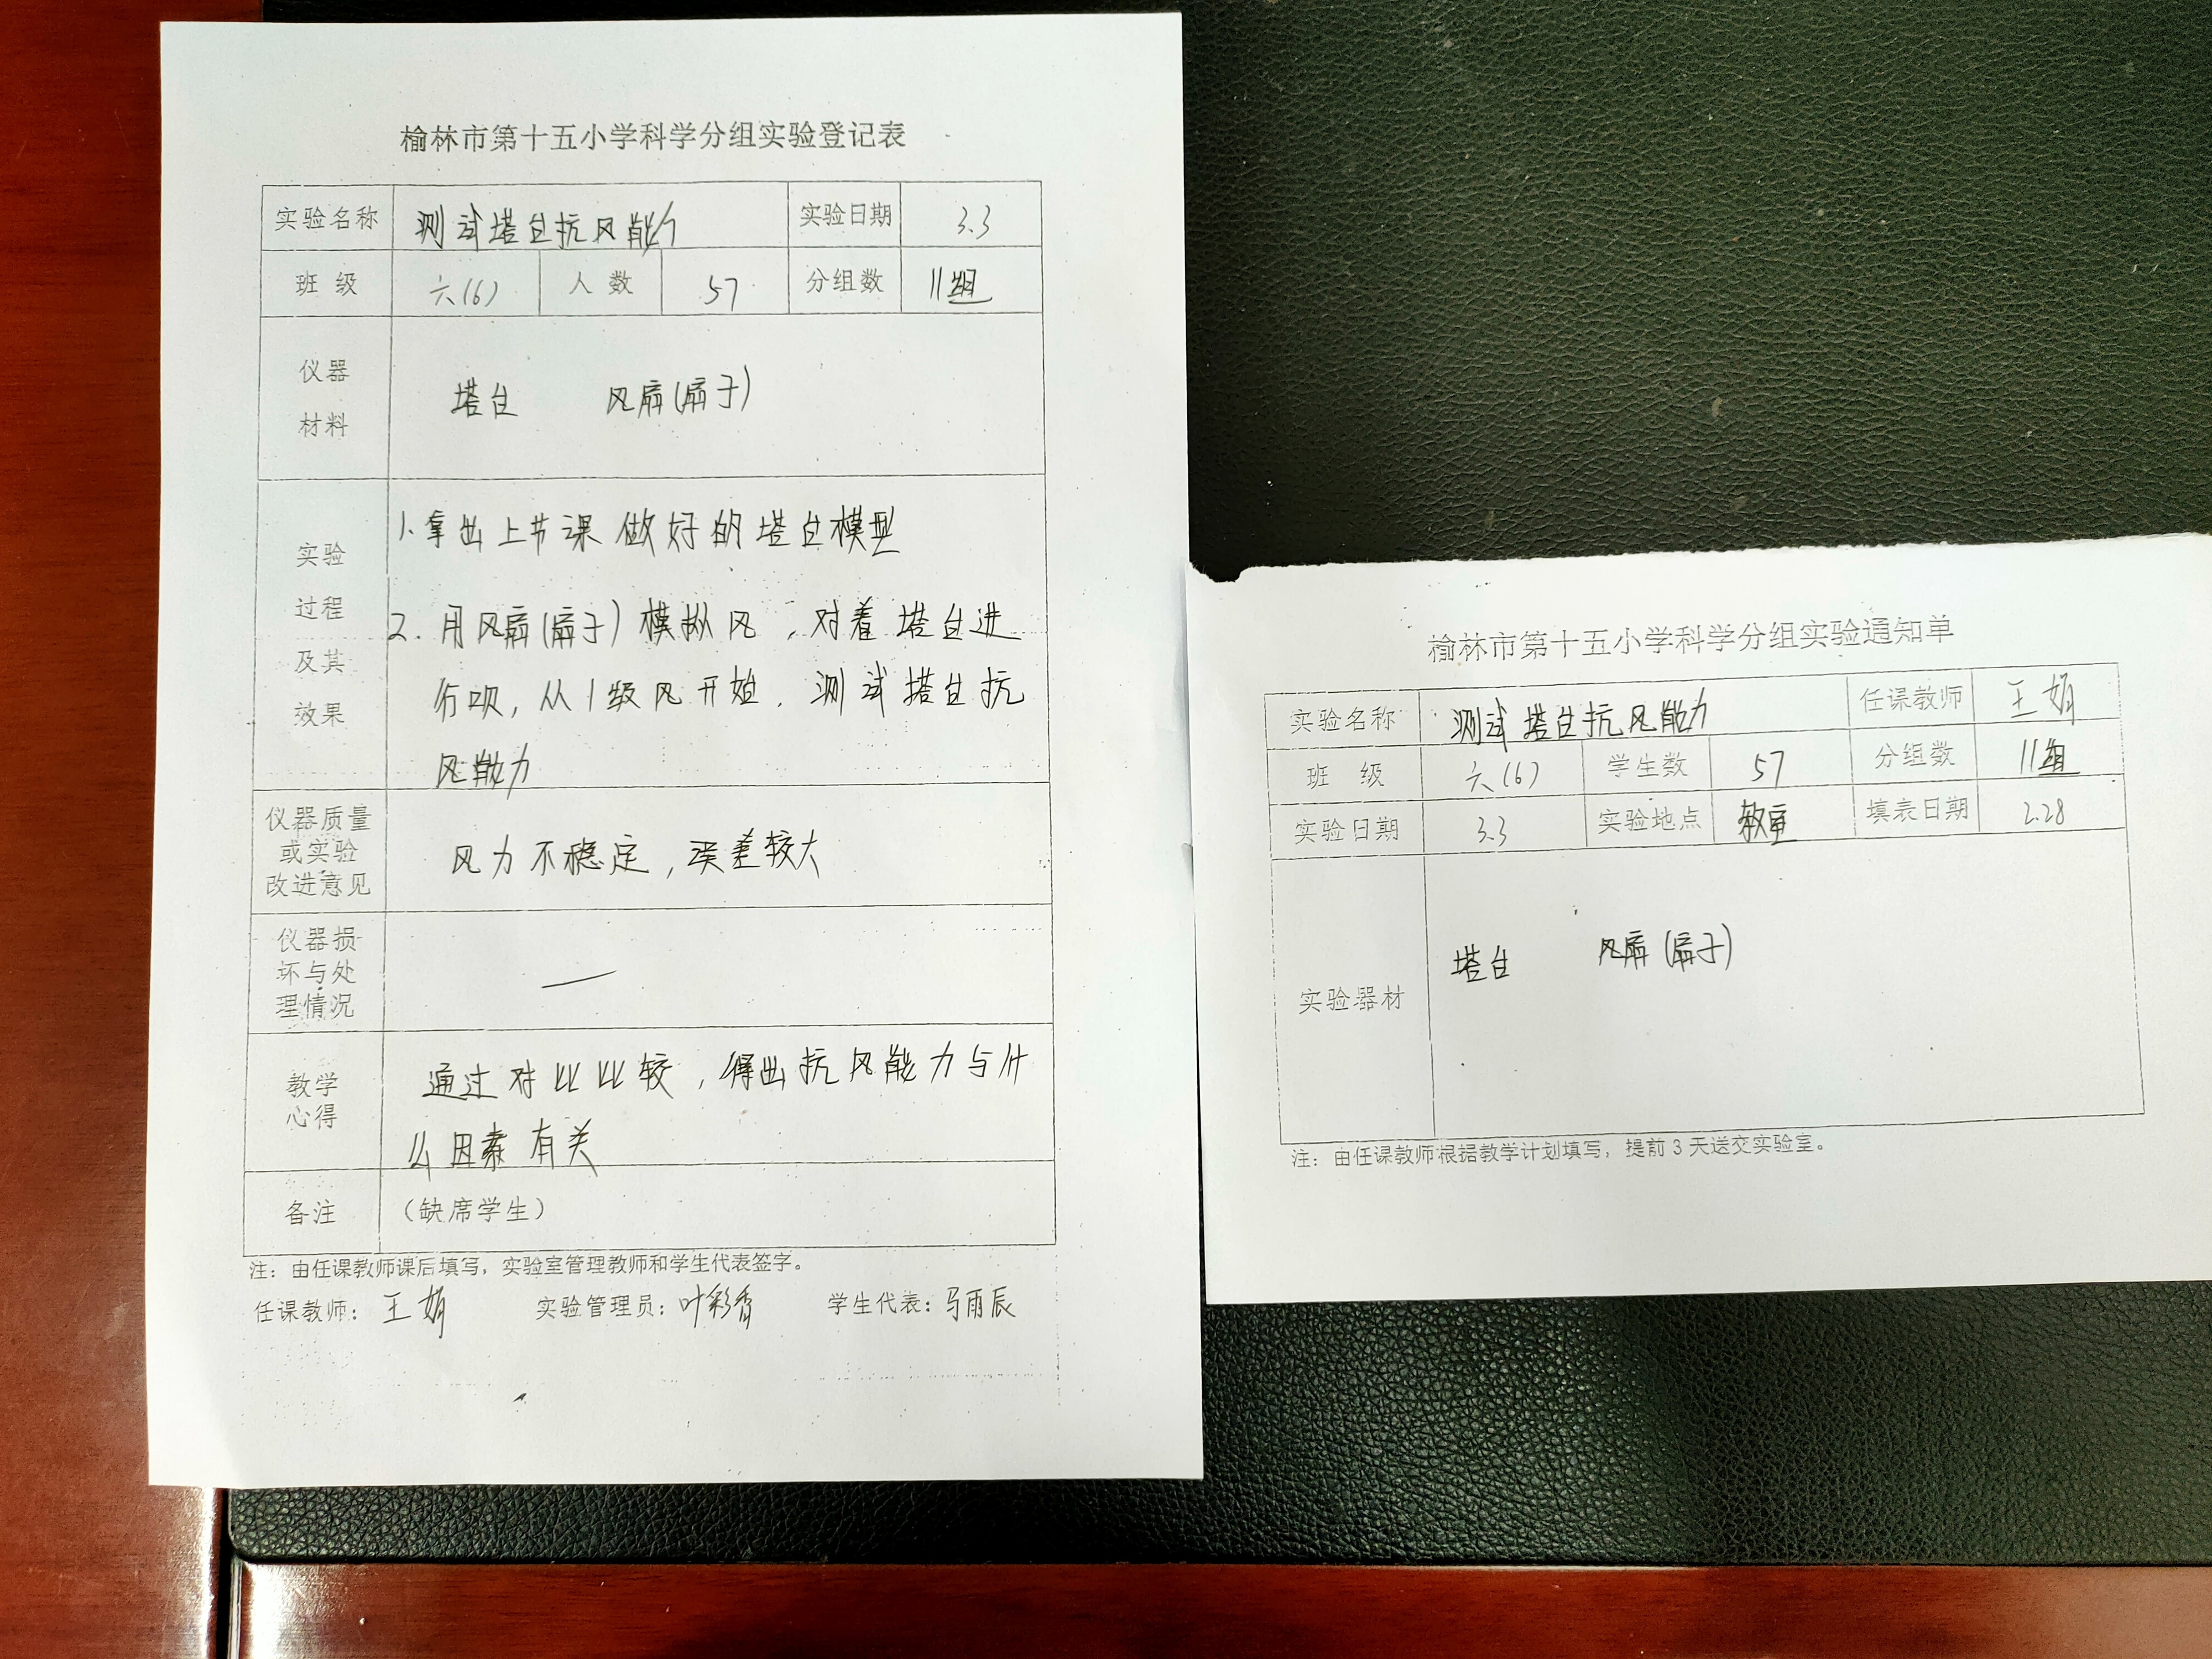 榆林市第十五小学科学分组实验登记表
实验名称 测试塔台抗风能力 实验日期 3.3
班 级 六(6) 人 数 57 分组数 11组
仪器
材料
塔台 风扇(扇子)
实验
过程
及其
效果
1.拿出上节课做好的塔台模型
2.用风扇(扇子)模拟风,对着塔台进
行吹,从1级风开始.测试塔台抗
风能力
仪器质量
或实验
改进意见
风力不稳定,误差较大
仪器损
坏与处
理情况
—
教学
心得
通过对比比较,得出抗风能力与什
么因素有关
备注 (缺席学生)
注：由任课教师课后填写，实验室管理教师和学生代表签字。
任课教师：王娟 实验管理员：叶彩秀 学生代表：马雨辰
榆林市第十五小学科学分组实验通知单
实验名称 测试塔台抗风能力 任课教师 王娟
班 级 六(6) 学生数 57 分组数 11组
实验日期 3.3 实验地点 教室 填表日期 2.28
实验器材 塔台 风扇(扇子)
注：由任课教师根据教学计划填写，提前3天送交实验室。